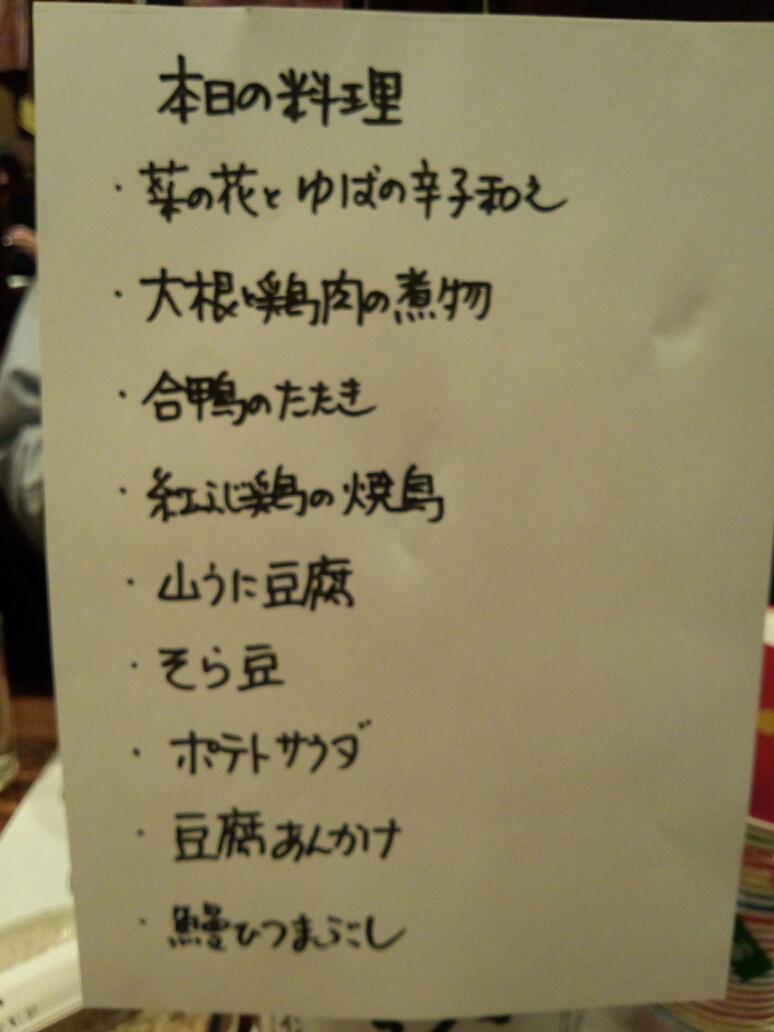 本日の料理
・菜の花とゆばの辛子和え
・大根と鶏肉の煮物
・合鴨のたたき
・紅ふじ鶏の焼鳥
・山うに豆腐
・そら豆
・ポテトサラダ
・豆腐あんかけ
・鰻ひつまぶし